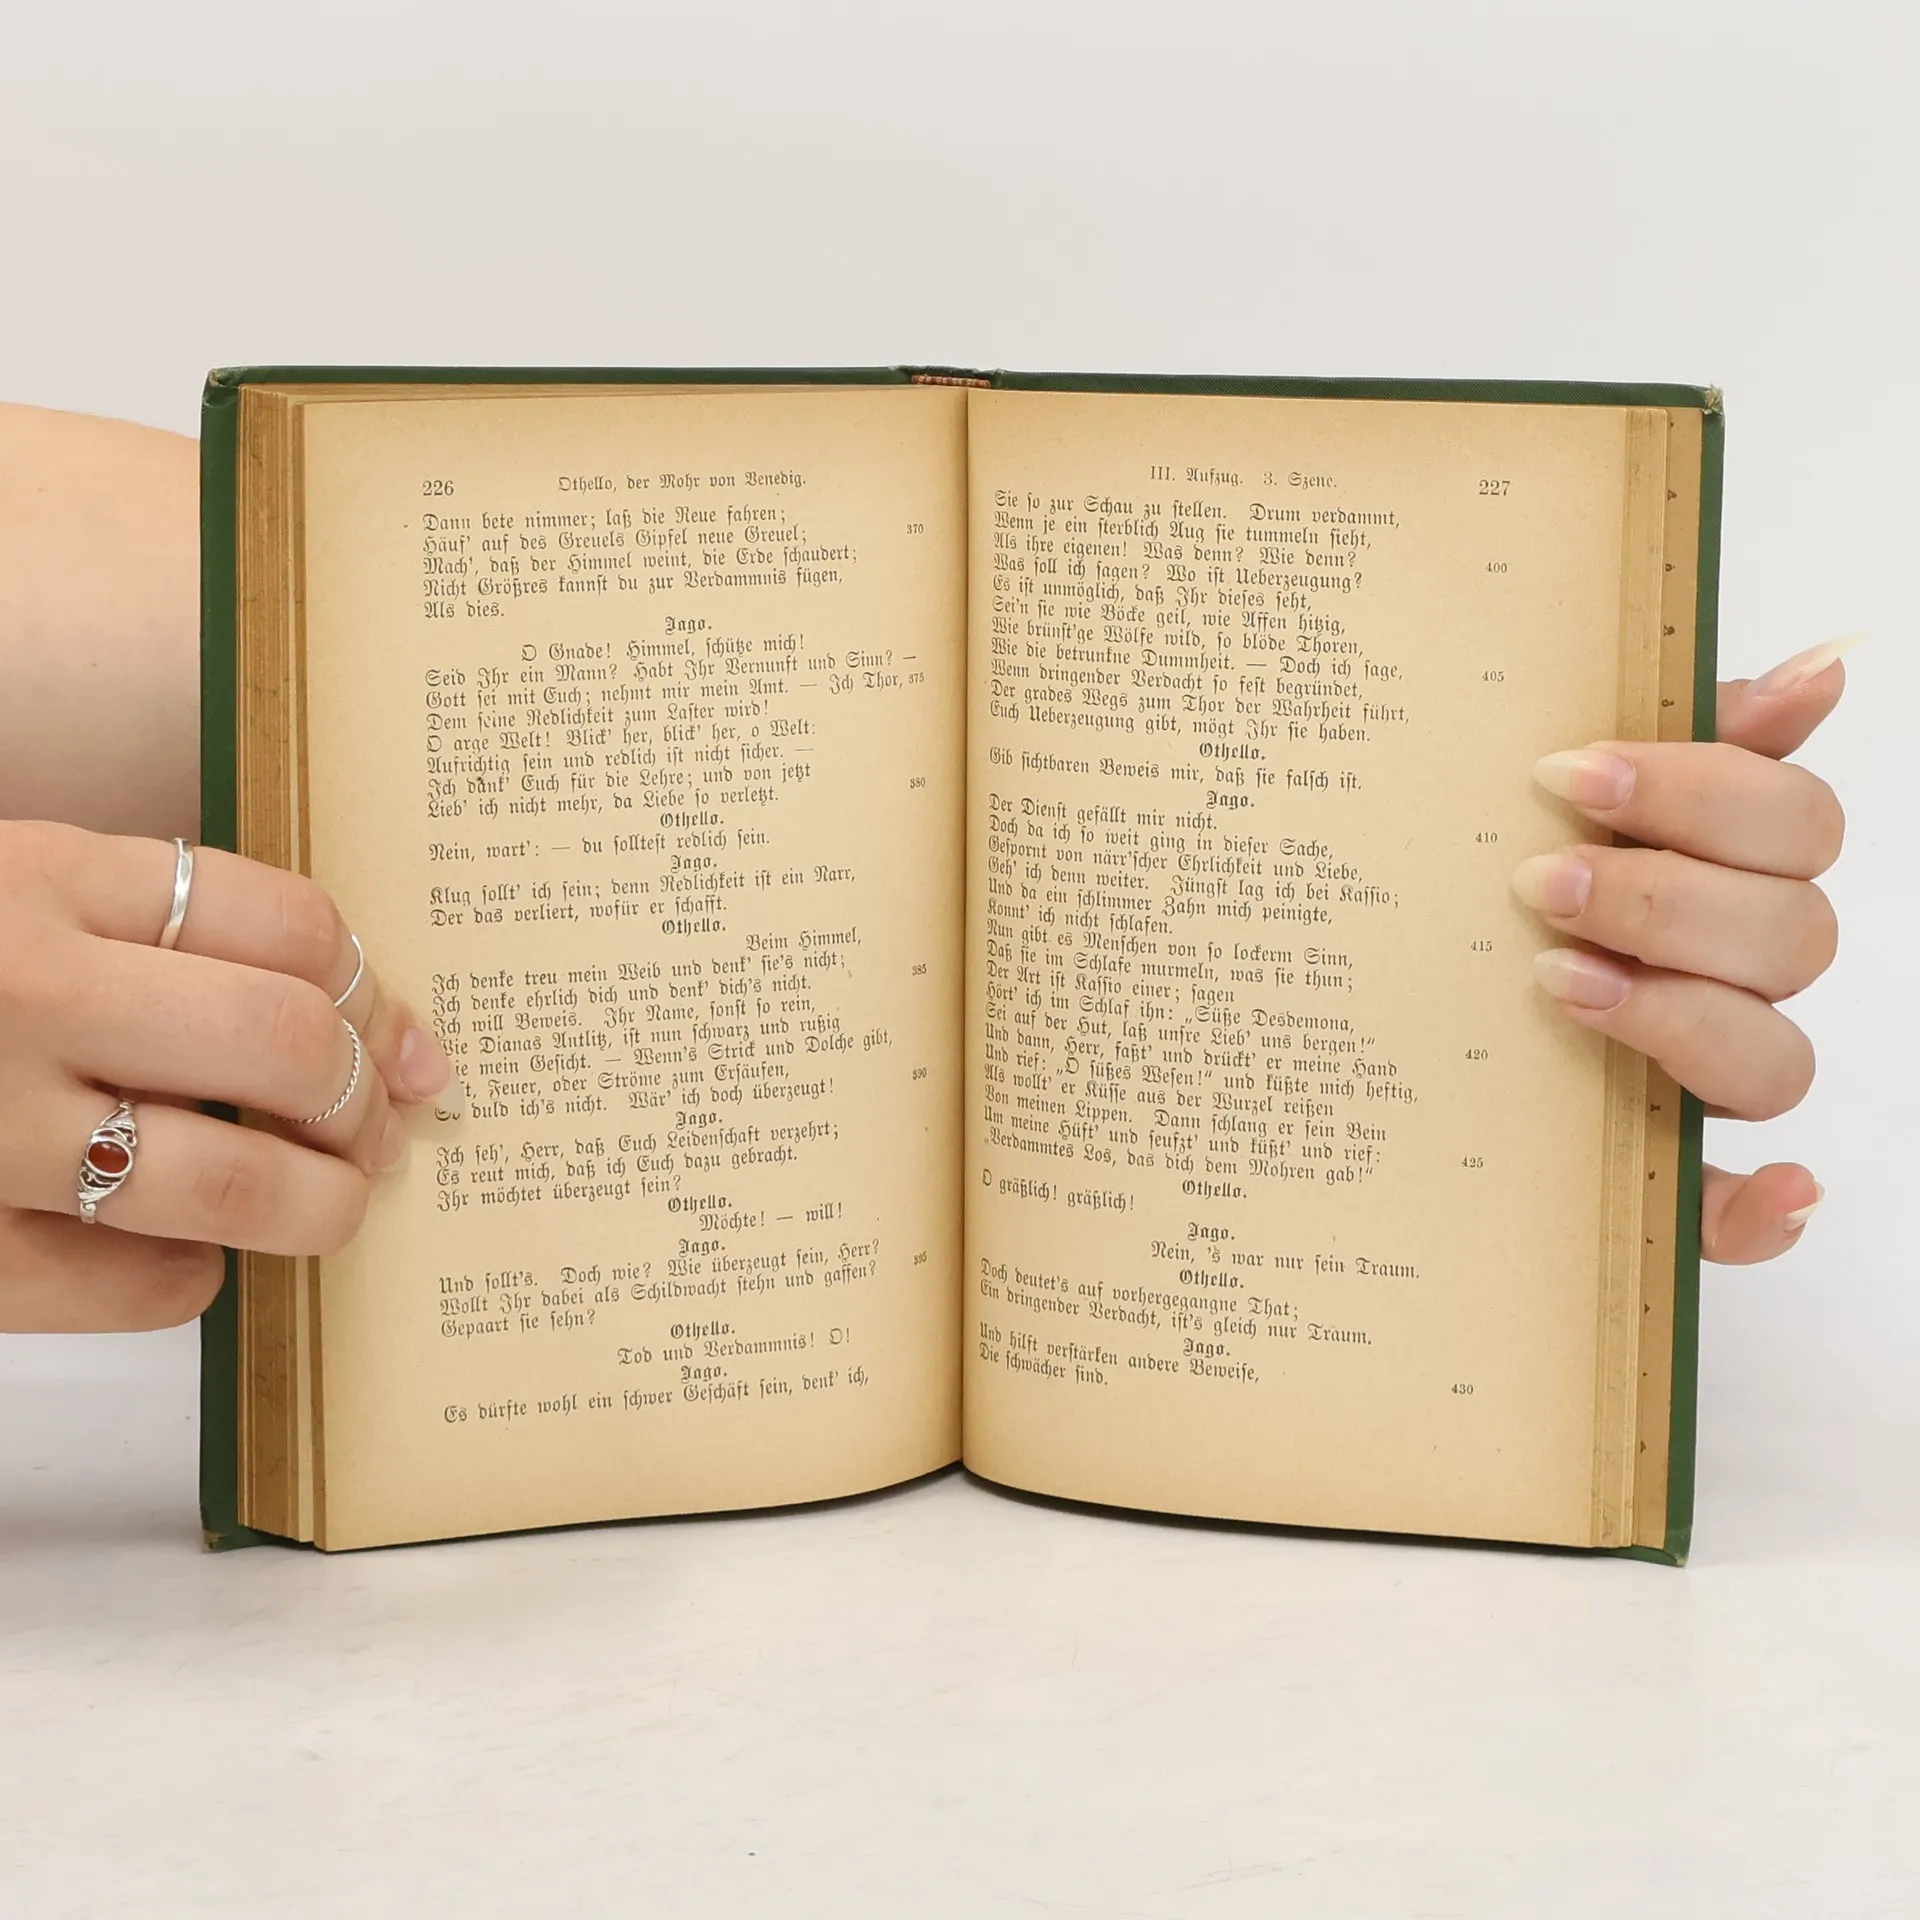 226 Othello, der Mohr von Venedig.
Dann bete nimmer; laß die Reue fahren;
Häuf' auf des Greuels Gipfel neue Greuel; 370
Mach', daß der Himmel weint, die Erde schaudert;
Nicht Größres kannst du zur Verdammnis fügen,
Als dies.
Jago.
O Gnade! Himmel, schütze mich!
Seid Ihr ein Mann? Habt Ihr Vernunft und Sinn? —
Gott sei mit Euch; nehmt mir mein Amt. — Ich Thor, 375
Dem seine Redlichkeit zum Laster wird!
O arge Welt! Blick' her, blick' her, o Welt:
Aufrichtig sein und redlich ist nicht sicher. —
Ich dank' Euch für die Lehre; und von jetzt
Lieb' ich nicht mehr, da Liebe so verletzt. 380
Othello.
Nein, wart': — du solltest redlich sein.
Jago.
Klug sollt' ich sein; denn Redlichkeit ist ein Narr,
Der das verliert, wofür er schafft.
Othello.
Beim Himmel,
Ich denke treu mein Weib und denk' sie's nicht; 385
Ich denke ehrlich dich und denk' dich's nicht.
Ich will Beweis. Ihr Name, sonst so rein,
Wie Dianas Antlitz, ist nun schwarz und rußig
ie mein Gesicht. — Wenn's Strick und Dolche gibt,
t, Feuer, oder Ströme zum Ersäufen, 390
So duld ich's nicht. Wär' ich doch überzeugt!
Jago.
Ich seh', Herr, daß Euch Leidenschaft verzehrt;
Es reut mich, daß ich Euch dazu gebracht.
Ihr möchtet überzeugt sein?
Othello.
Möchte! — will!
Jago.
Und sollt's. Doch wie? Wie überzeugt sein, Herr? 395
Wollt Ihr dabei als Schildwacht stehn und gaffen?
Gepaart sie sehn?
Othello.
Tod und Verdammnis! O!
Jago.
Es dürfte wohl ein schwer Geschäft sein, denk' ich,
III. Aufzug. 3. Szene. 227
Sie so zur Schau zu stellen. Drum verdammt,
Wenn je ein sterblich Aug sie tummeln sieht,
Als ihre eigenen! Was denn? Wie denn? 400
Was soll ich sagen? Wo ist Ueberzeugung?
Es ist unmöglich, daß Ihr dieses seht,
Sei'n sie wie Böcke geil, wie Affen hitzig,
Wie brünst'ge Wölfe wild, so blöde Thoren,
Wie die betrunkne Dummheit. — Doch ich sage, 405
Wenn dringender Verdacht so fest begründet,
Der grades Wegs zum Thor der Wahrheit führt,
Euch Ueberzeugung gibt, mögt Ihr sie haben.
Othello.
Gib sichtbaren Beweis mir, daß sie falsch ist.
Jago.
Der Dienst gefällt mir nicht. 410
Doch da ich so weit ging in dieser Sache,
Gespornt von närr'scher Ehrlichkeit und Liebe,
Geh' ich denn weiter. Jüngst lag ich bei Kassio;
Und da ein schlimmer Zahn mich peinigte,
Konnt' ich nicht schlafen. 415
Nun gibt es Menschen von so lockerm Sinn,
Daß sie im Schlafe murmeln, was sie thun;
Der Art ist Kassio einer; sagen
Hört' ich im Schlaf ihn: „Süße Desdemona,
Sei auf der Hut, laß unsre Lieb' uns bergen!“ 420
Und dann, Herr, faßt' und drückt' er meine Hand
Und rief: „O süßes Wesen!“ und küßte mich heftig,
Als wollt' er Küsse aus der Wurzel reißen
Von meinen Lippen. Dann schlang er sein Bein
Um meine Hüft' und seufzt' und küßt' und rief: 425
„Verdammtes Los, das dich dem Mohren gab!“
Othello.
O gräßlich! gräßlich!
Jago.
Nein, 's war nur sein Traum.
Othello.
Doch deutet's auf vorhergegangne That;
Ein dringender Verdacht, ist's gleich nur Traum.
Jago.
Und hilft verstärken andere Beweise, 430
Die schwächer sind.